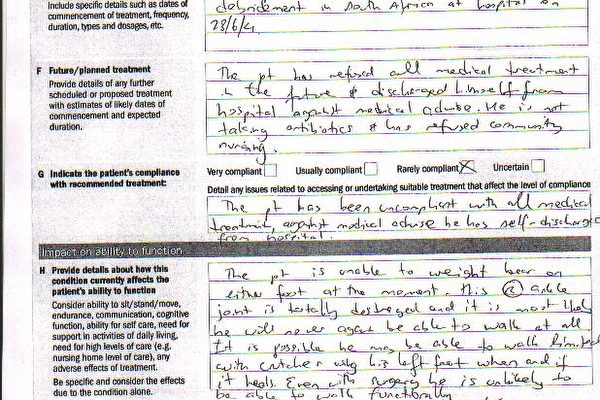 Include specific details such as dates of
commencement of treatment, frequency,
duration, types and dosages, etc.
debridement in South Africa at hospital on
28/6/4
F Future/planned treatment
Provide details of any further
scheduled or proposed treatment
with estimates of likely dates of
commencement and expected
duration.
The pt has refused all medical treatment
in the future & discharged himself from
hospital against medical advise. He is not
taking antibiotics & has refused community
nursing.
G Indicate the patient's compliance
with recommended treatment:
Very compliant Usually compliant Rarely compliant X Uncertain
Detail any issues related to accessing or undertaking suitable treatment that affect the level of compliance
The pt has been uncompliant with all medical
treatment, against medical advise he has self-discharged
from hospital.
Impact on ability to function
H Provide details about how this
condition currently affects the
patient's ability to function
Consider ability to sit/stand/move,
endurance, communication, cognitive
function, ability for self care, need for
support in activities of daily living,
need for high levels of care (e.g.
nursing home level of care), any
adverse effects of treatment.
Be specific and consider the effects
due to the condition alone.
The pt is unable to weight bear on
either foot at the moment. His ankle
joint is totally destroyed and it is most likely
he will never again be able to walk at all.
It is possible he may be able to walk
with crutches using his left foot when and if
it heals. Even with surgery he is unlikely to
be able to walk functionally